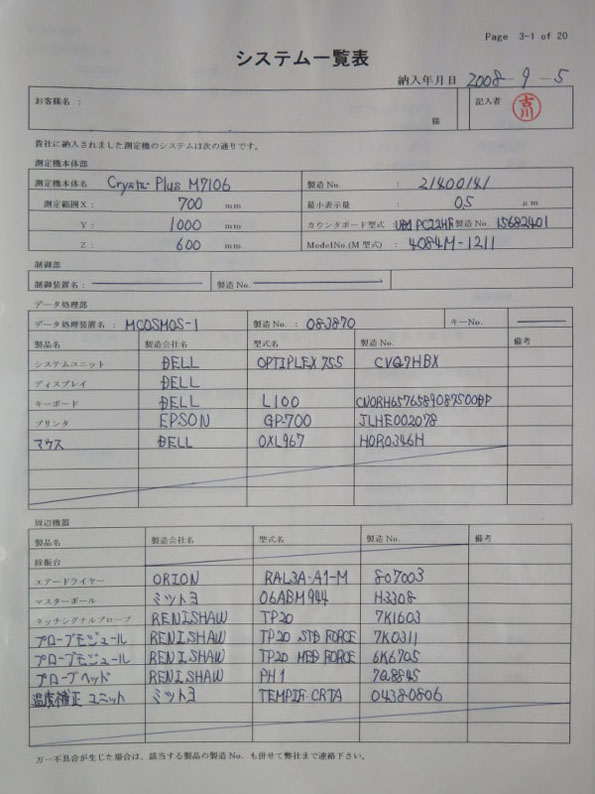 Page 3-1 of 20
システム一覧表
納入年月日 2008-9-5
お客様名： 様 記入者 古川
貴社に納入されました測定機のシステムは次の通りです。
測定機本体部
測定機本体名 Crysta Plus M7106 製造No. : 21400141
測定範囲X： 700 mm 最小表示量 : 0.5 μm
Y： 1000 mm カウンタボード型式 : PC22HF 製造No. 15682401
Z： 600 mm ModelNo.(M型式) : 4084M-1211
制御部
制御装置名： 製造No.
データ処理部
データ処理装置名： MCOSMOS-1 製造No.： 083870 キーNo.
製品名 製造会社名 型式名 製造No. 備考
システムユニット DELL OPTIPLEX 755 CVQ7HBX
ディスプレイ DELL
キーボード DELL L100
プリンタ EPSON GP-700 JLHE002078
マウス DELL OXL967 HOR0346H
周辺機器
製品名 製造会社名 型式名 製造No. 備考
除振台
エアードライヤー ORION RAL3A-A1-M 807003
マスターボール ミツトヨ 06ABM944 H3308
タッチシグナルプローブ RENISHAW TP20 7K1603
プローブモジュール RENISHAW TP20 STD FORCE 7K0311
プローブモジュール RENISHAW TP20 MED FORCE 6K6705
プローブヘッド RENISHAW PH1 7Q8845
温度補正ユニット ミツトヨ CRTA 04380806
万一不具合が生じた場合は、該当する製品の製造No. も併せて弊社まで連絡下さい。